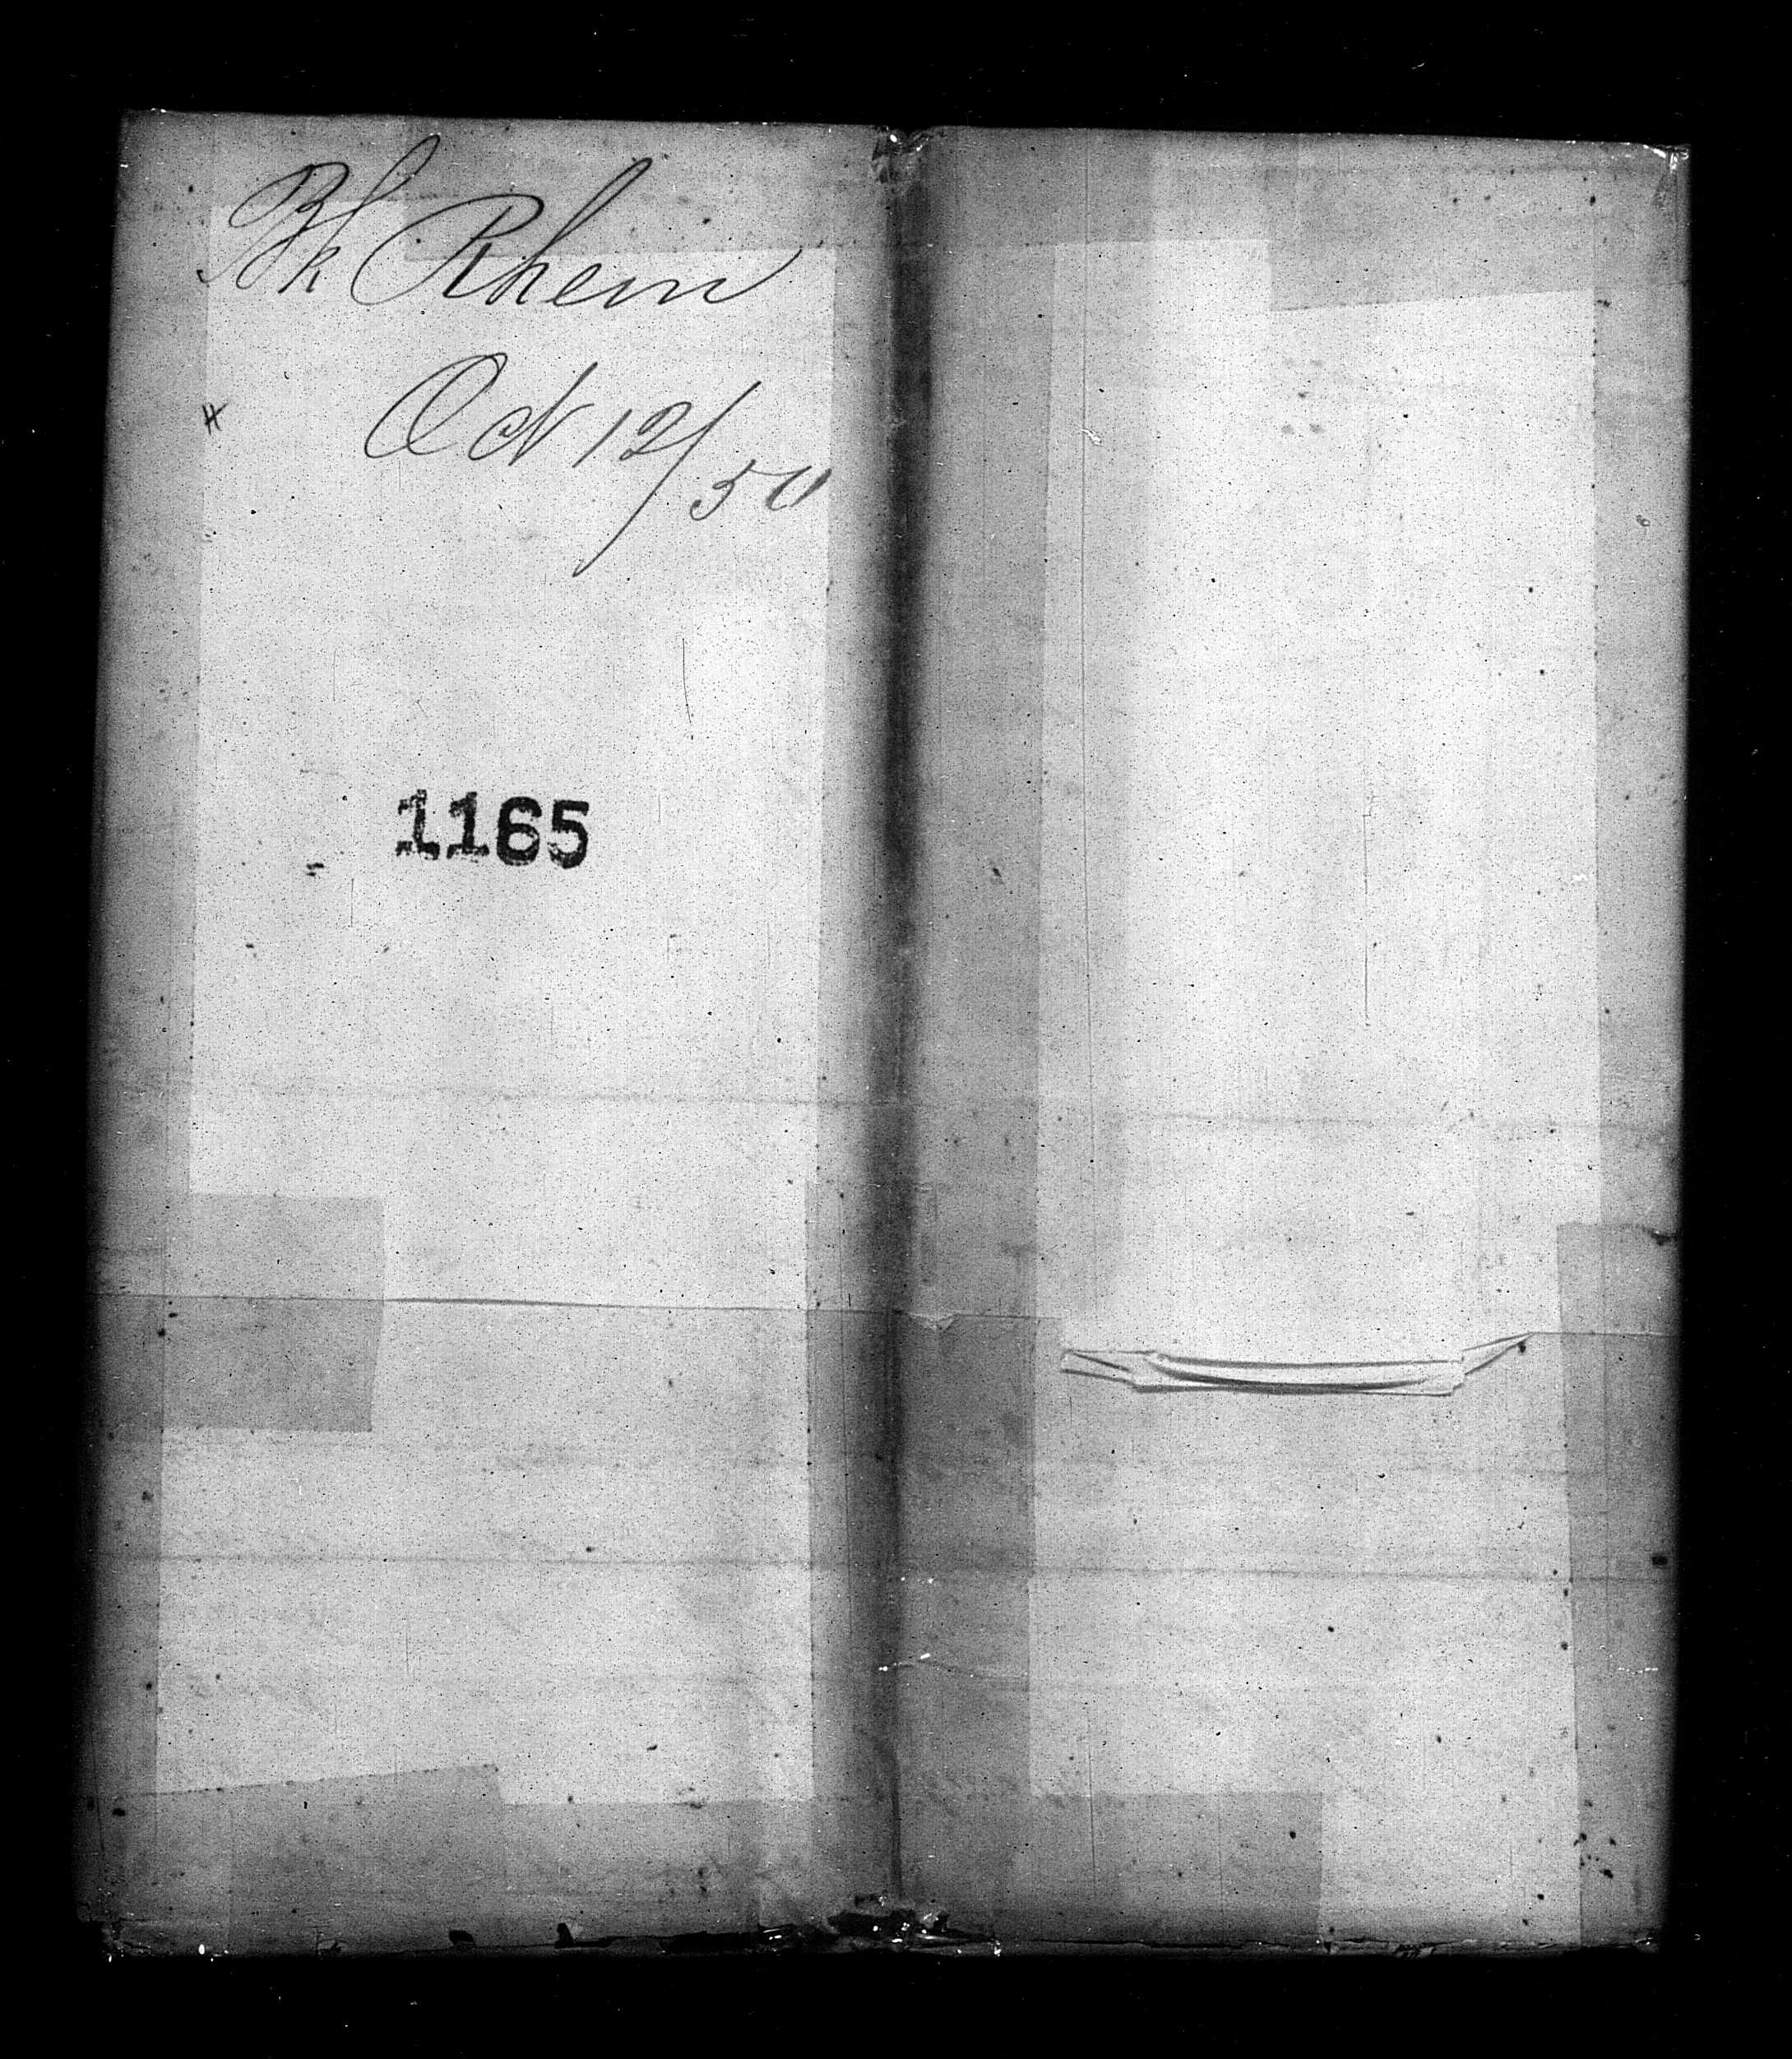 Bk Rhein
Oct 12/50
1165